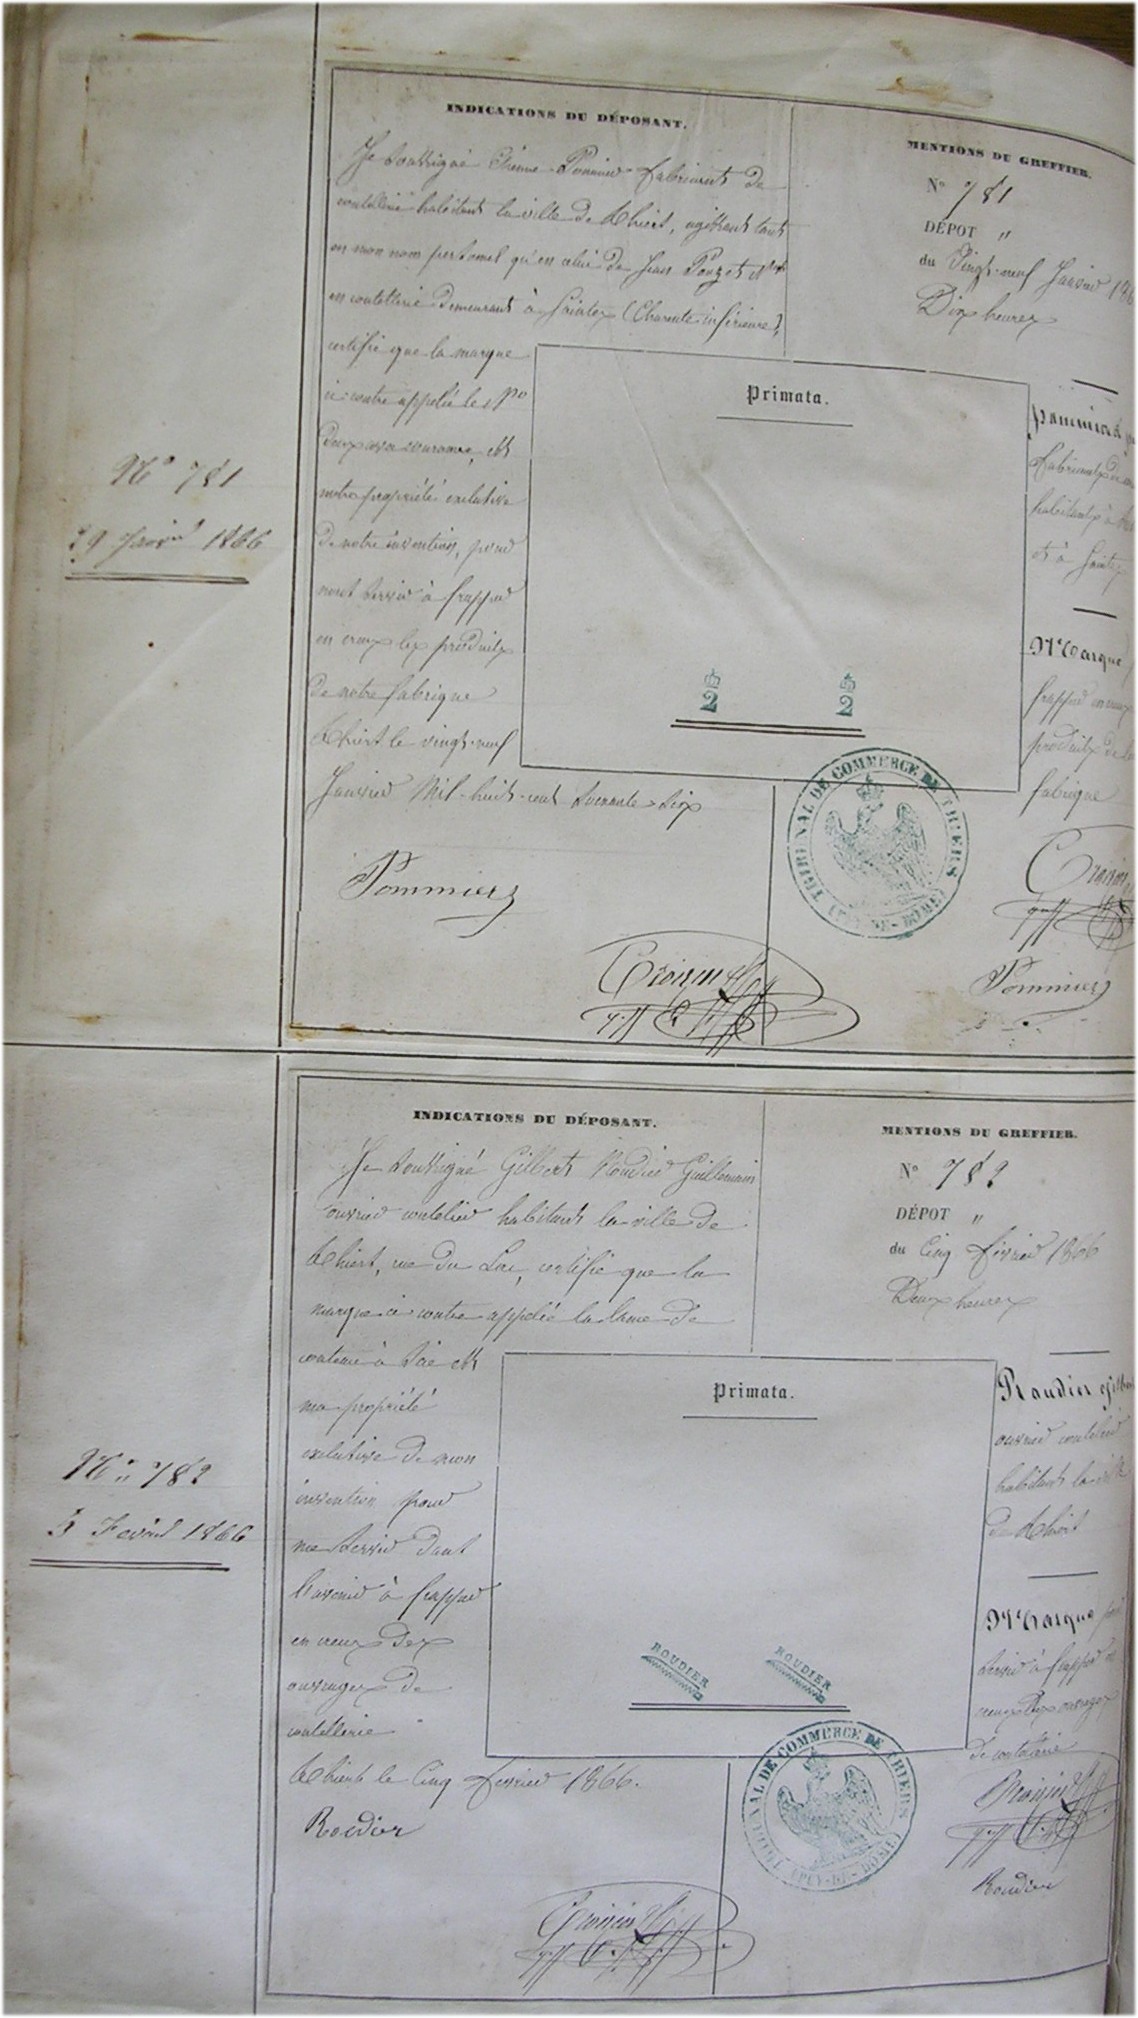 INDICATIONS DU DÉPOSANT.
Je soussigné Etienne Pommier fabricant de
coutellerie habitant la ville de Thiers, agissant tant
en mon nom personnel qu'en celui de Jean Pouzet
en coutellerie demeurant à Saintes (Charente inférieure),
certifie que la marque
ci-contre appelée le No
deux sa couronne, est
notre propriété exclusive
de notre invention, pour
nous servir à frapper
en creux les produits
de notre fabrique
Thiers le vingt-neuf
Janvier Mil-huit-cent soixante-six
Pommier
MENTIONS DU GREFFIER.
No 781
DÉPOT "
du Vingt-neuf Janvier 186
Dix heures
No 781
29 Janvier 1866
Primata.
2
2
Pommier
fabricants de
habitants à
et à Saintes
Marque
frapper en creux
produits de
fabrique
TRIBUNAL DE COMMERCE DE THIERS
(PUY-DE-DÔME)
Pommier
INDICATIONS DU DÉPOSANT.
Je soussigné Gilbert Roudier Guillemin
ouvrier coutelier habitant la ville de
Thiers, rue du Lac, certifie que la
marque ci contre appelée la lame de
couteau à scie est
ma propriété
exclusive de mon
invention pour
me servir dans
l'avenir à frapper
en creux des
ouvrages de
coutellerie
Thiers le Cinq février 1866.
Roudier
MENTIONS DU GREFFIER.
No 782
DÉPOT "
du Cinq février 1866
Deux heures
No 782
5 Février 1866
Primata.
ROUDIER
ROUDIER
Roudier
ouvrier coutelier
habitant la ville
de Thiers
Marque pour
servir à frapper en
creux des ouvrages
de coutellerie
TRIBUNAL DE COMMERCE DE THIERS
(PUY-DE-DÔME)
Roudier